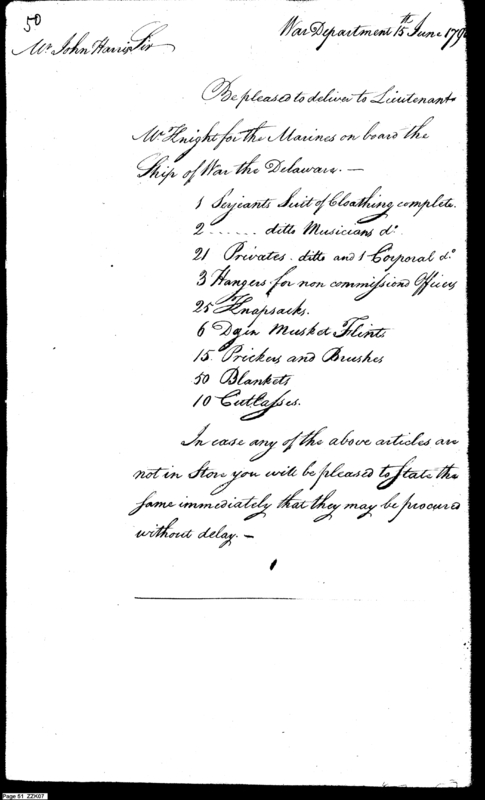 50
War Department 15th June 179
Mr John Harris Sir
Be pleased to deliver to Lieutenant
McKnight for the Marines on board the
Ship of War the Delaware. —
1 Serjeants Suit of Cloathing complete.
2 ...... ditto Musicians do.
21 Privates ditto and 1 Corporal do.
3 Hangers for non commissiond Officers
25 Knapsacks.
6 Dozn Musket Flints
15. Prickers and Brushes
50 Blankets
10 Cutlasses.
In case any of the above articles are
not in Store you will be pleased to State the
same immediately that they may be procured
without delay. —
Page 51 ZZK07